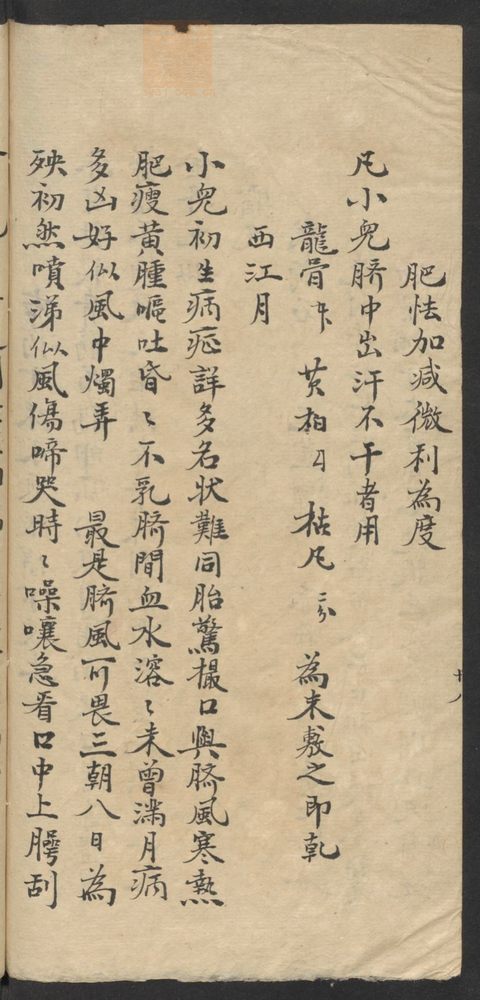 肥怯加减微利為度
凡小兒臍中出汗不干者用
龍骨 黃柏 枯凡 三分 為末敷之即乾
西江月
小兒初生病症詳多名状難同胎驚撮口與臍風寒熱
肥瘦黃腫嘔吐昏〻不乳臍間血水溶〻未曾滿月病
多凶好似風中燭弄 最是臍風可畏三朝八日為
殃初然噴涕似風傷啼哭時〻噪嚷急看口中上腭刮